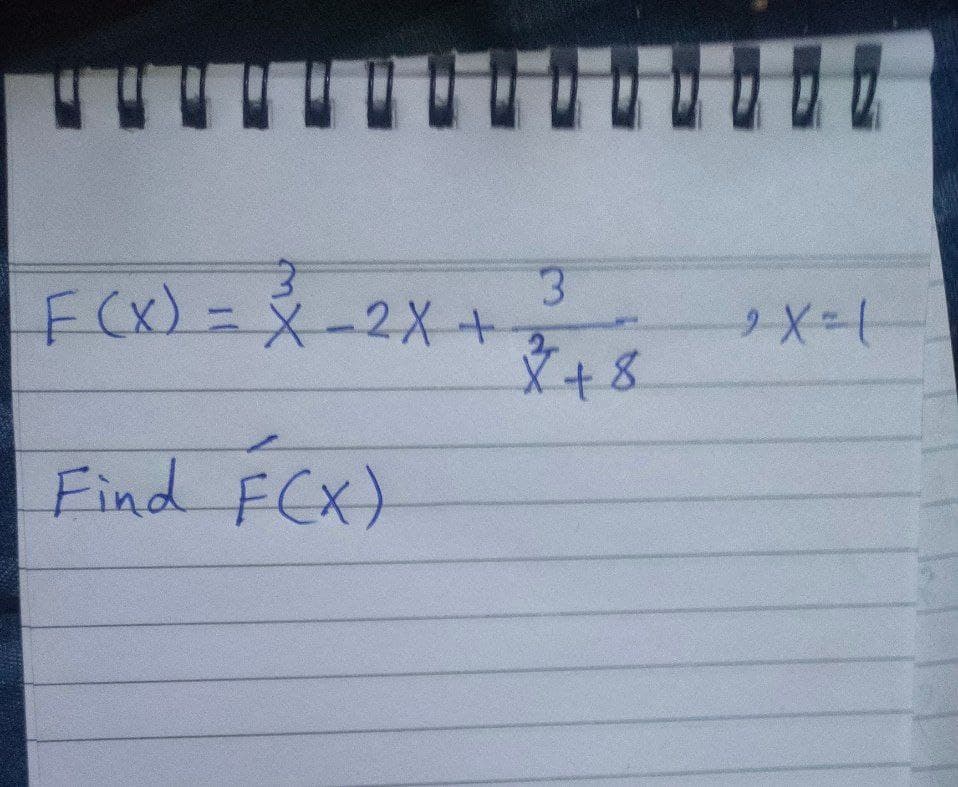 F(x) = x³ - 2x + 3/(x² + 8) , x=1
Find F́(x)